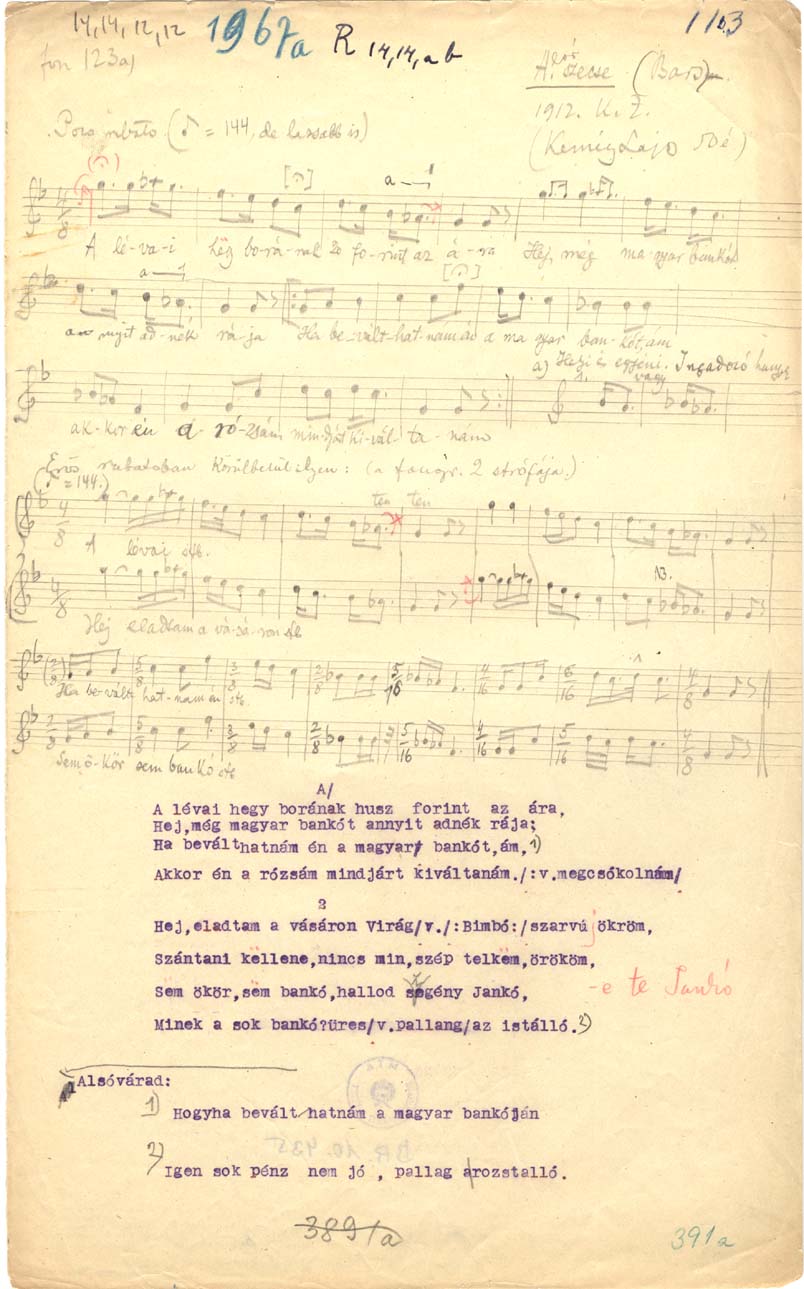 14,14,12,12 1967a R 14,14,a b 1103
fon 123a)
Alsó szecse (Bars)
1912. K. Z.
Poco rubato. (♪ = 144, de lassabb is)
(Kemíg Lajo 50 é)
A lé-va-i hëgy bo-rá-nak 20 fo-rint az á-ra Hej, még ma-gyar bankót
annyit ad-nék rá-ja Ha be-vált-hat-nám én a ma gyar ban-kót, ám
a) Helyi és egyéni. Ingadozó hangok
1. vagy
ak-kor én a ró-zsám mindjárt ki-vál-ta-nám
Erős rubatoban körülbelül ilyen: (a fonogr. 2 strófája.)
(♪ = 144.)
ten ten
A lévai stb.
Hej eladtam a vá-sá-ron stb
Ha be-vált hat-nám én stb.
Sem ö-kör sem bankó stb
A/
A lévai hegy borának husz forint az ára,
Hej,még magyar bankót annyit adnék rája;
Ha beválthatnám én a magyar bankót,ám,1)
Akkor én a rózsám mindjárt kiváltanám./:v.megcsókolnám/
2
Hej,eladtam a vásáron Virág/v./:Bimbó:/szarvú ökröm,
Szántani këllene,nincs min,szép telkëm,örököm,
Sëm ökör,sëm bankó,hallod szegény Jankó, -e te Jankó
Minek a sok bankó?üres/v.pallang/az istálló.2)
Alsóvárad:
1) Hogyha bevált hatnám a magyar bankóján
2) Igen sok pénz nem jó , pallag arozstalló.
BR 10.435
389/a 391a